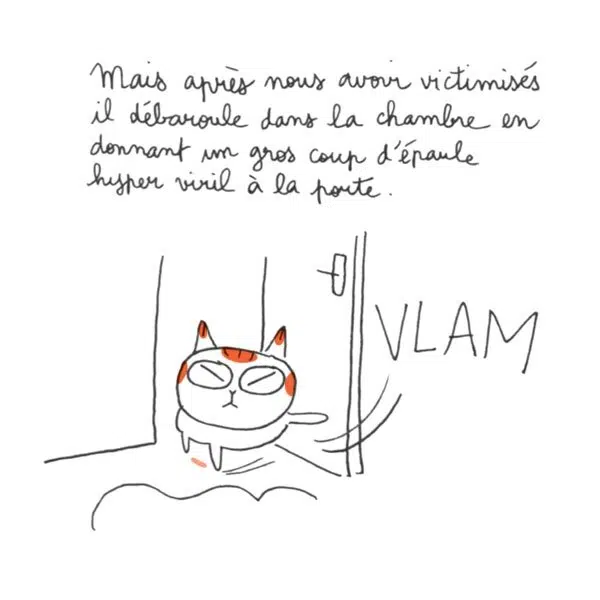 Mais après nous avoir victimisés
il débaroule dans la chambre en
donnant un gros coup d'épaule
hyper viril à la porte.
VLAM